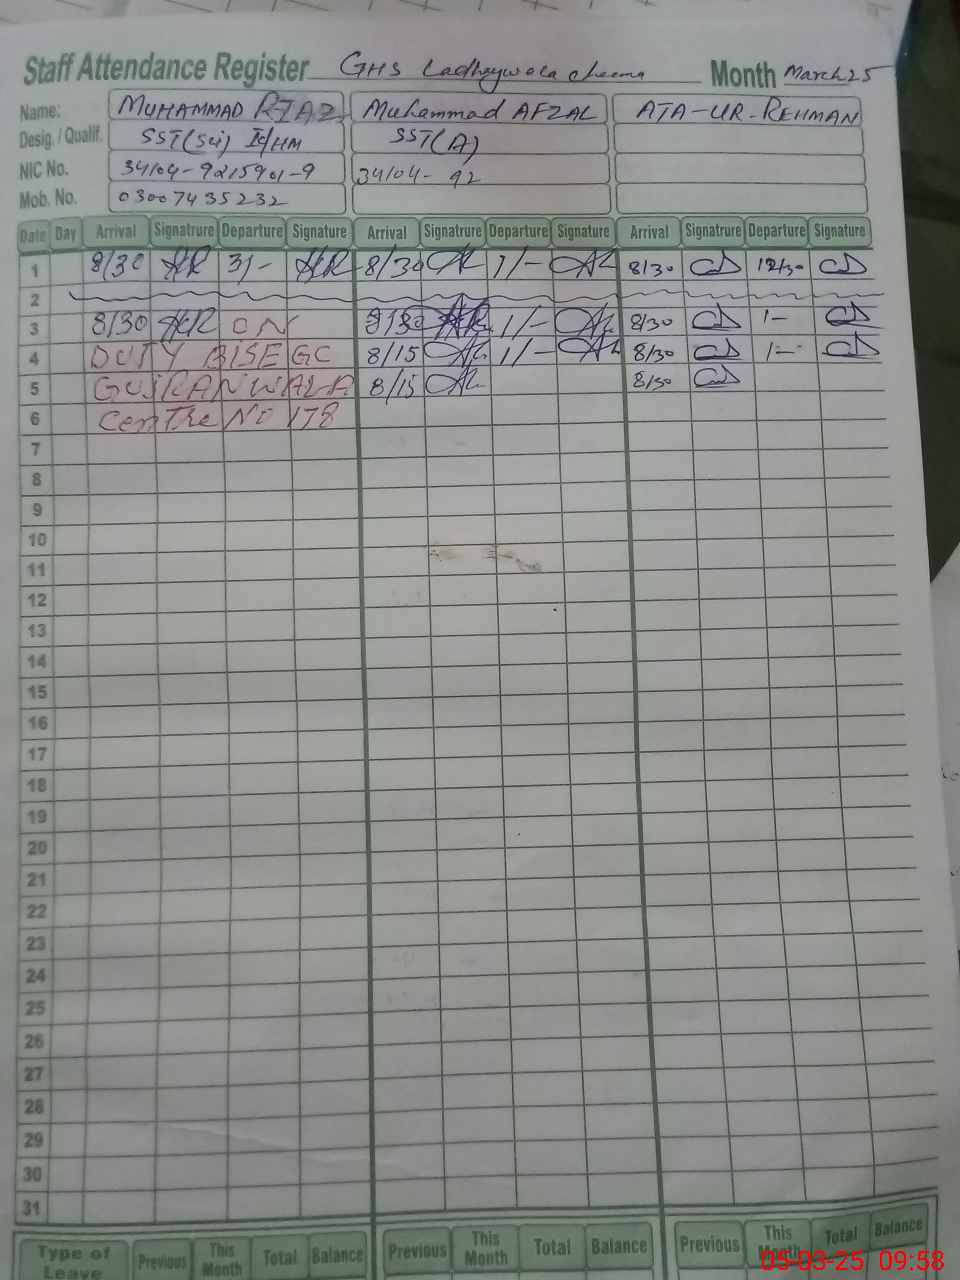 Staff Attendance Register GHS Ladheywala cheema Month March 25
Name: MUHAMMAD RIAZ Muhammad AFZAL ATA-UR-REHMAN
Desig. / Qualif. SST(Sci) Ic/HM SST(A)
NIC No. 34104-9215901-9 34104-92
Mob. No. 03007435232
Date Day Arrival Signatrure Departure Signature Arrival Signatrure Departure Signature Arrival Signatrure Departure Signature
1 8/30 3/- 8/30 1/- 8/30 12/30
2
3 8/30 ON 1/- 8/30 1-
4 DUTY BISE GC 8/15 1/- 8/30 1-
5 GUJRANWALA 8/15 8/30
6 CenTre NO 178
7
8
9
10
11
12
13
14
15
16
17
18
19
20
21
22
23
24
25
26
27
28
29
30
31
Type of Leave Previous This Month Total Balance Previous This Month Total Balance Previous This Month Total Balance
05-03-25 09:58